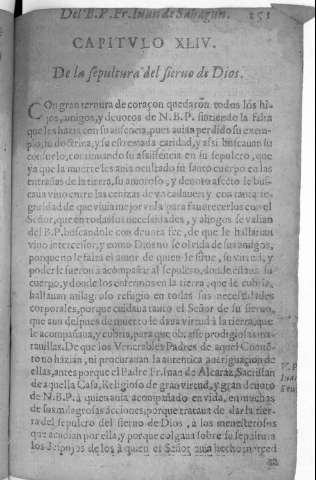 Del B. P. Fr. Iuan de Sahagun. 251
CAPITVLO XLIV.
De la sepultura del sieruo de Dios.
COn gran ternura de coraçon quedarõn todos lós hi-
jos, amigos, y deuotos de N. B. P. sintiendo la falta
que les hazia con su ausencia, pues auian perdido su exem-
plo, su doctrina, y su esforçada caridad, y assi buscauan su
consuelo, continuando su assistencia en su sepulcro, que
ya que la muerte les auia ocultado su santo cuerpo en las
entrañas de la tierra, su amoroso, y deuoto afecto le bus-
caua viuo entre las cenizas de
que viuia mejor vida para fauorecerlos con el
Señor, que en todas sus necessidades, y ahogos se valian
del B. P. buscandole con deuota fee, de que le hallarian
viuo intercessor, y como Dios no se oluida de sus amigos,
porque no le falta el amor de quien le sirue, su virtud, y
poder le fueron à acompañar al sepulcro, donde estaua su
cuerpo, y donde los enfermos en la tierra, que le cubria,
hallauan milagroso refugio en todas sus necessidades
corporales, porque cuidaua tanto el Señor de su sieruo,
que aun despues de muerto le daua virtud à la tierra, que
le acompañaua, y cubria, para que obrasse prodigiosas ma-
rauillas. De que los Venerables Padres de aquel Conuē-
to no hazian, ni procurauan la autentica aueriguacion de
ellas, antes porque el Padre Fr. Iuan de Alcaraz, Sacristan
de aquella Casa, Religioso de gran virtud, y gran deuoto
de N. B. P. à quien auia acompañado en vida, en muchas
de sus milagrosas acciones, porque trataua de dar la tier-
ra del sepulcro del sieruo de Dios, à los menesterosos
que acudian por ella, y porque colgaua sobre su sepultura
los despojos de los à quien el Señor auia hecho merced